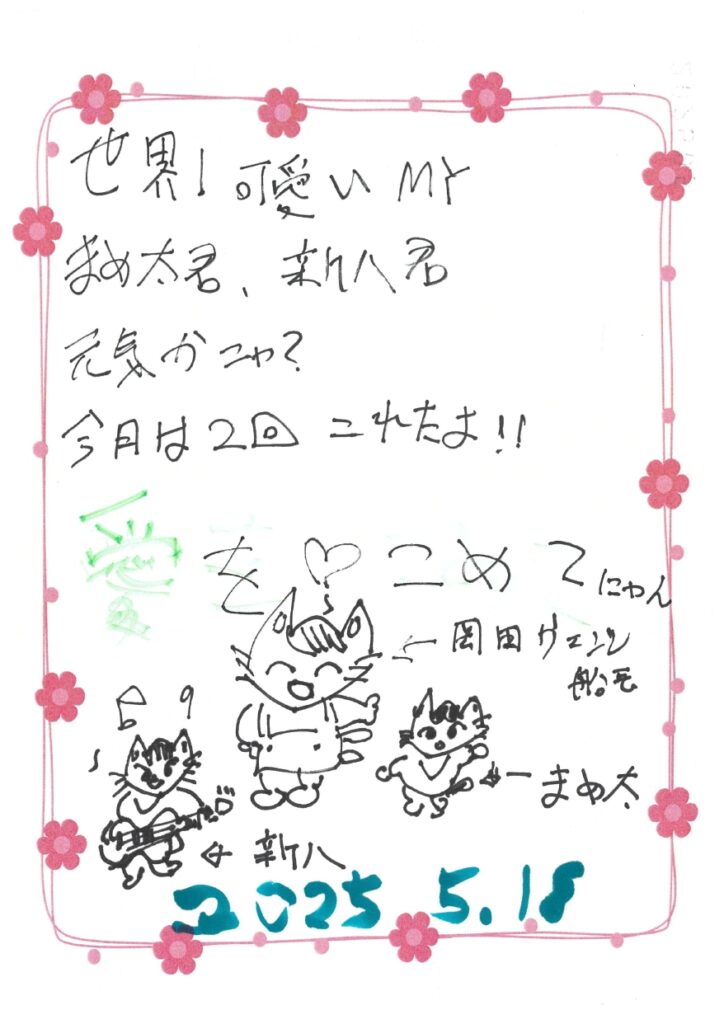 世界1可愛いMY
まめ太君、新八君
元気かニャ?
今月は2回ニれたよ!!
愛を♡こめてにゃん
←岡田ヴェンジ
船毛
←まめ太
←新八
2025.5.18